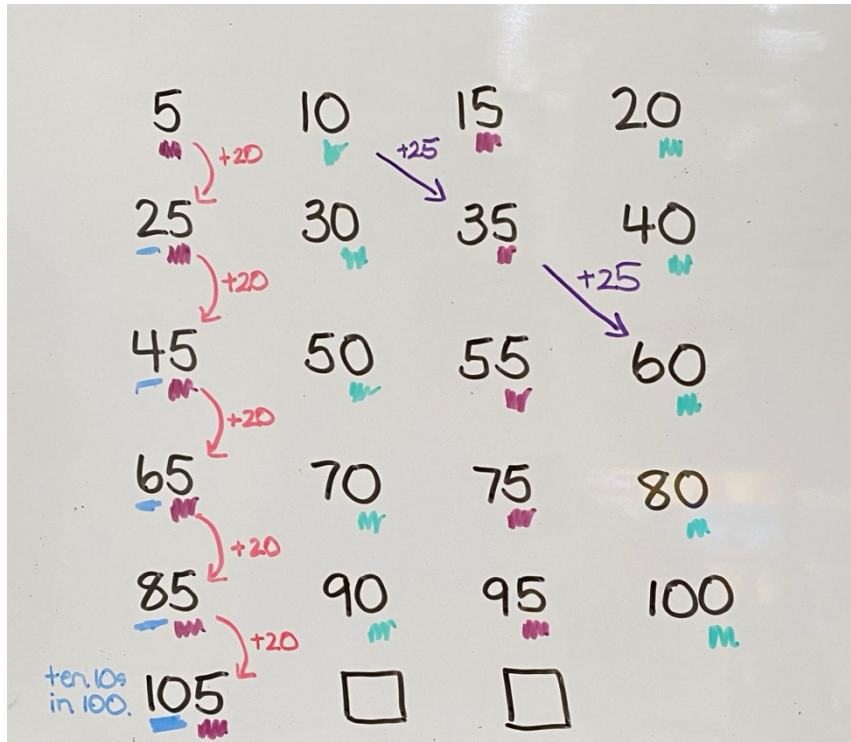 5 10 15 20
+20 +25
25 30 35 40
+20 +25
45 50 55 60
+20
65 70 75 80
+20
85 90 95 100
+20
ten 10s
in 100.
105